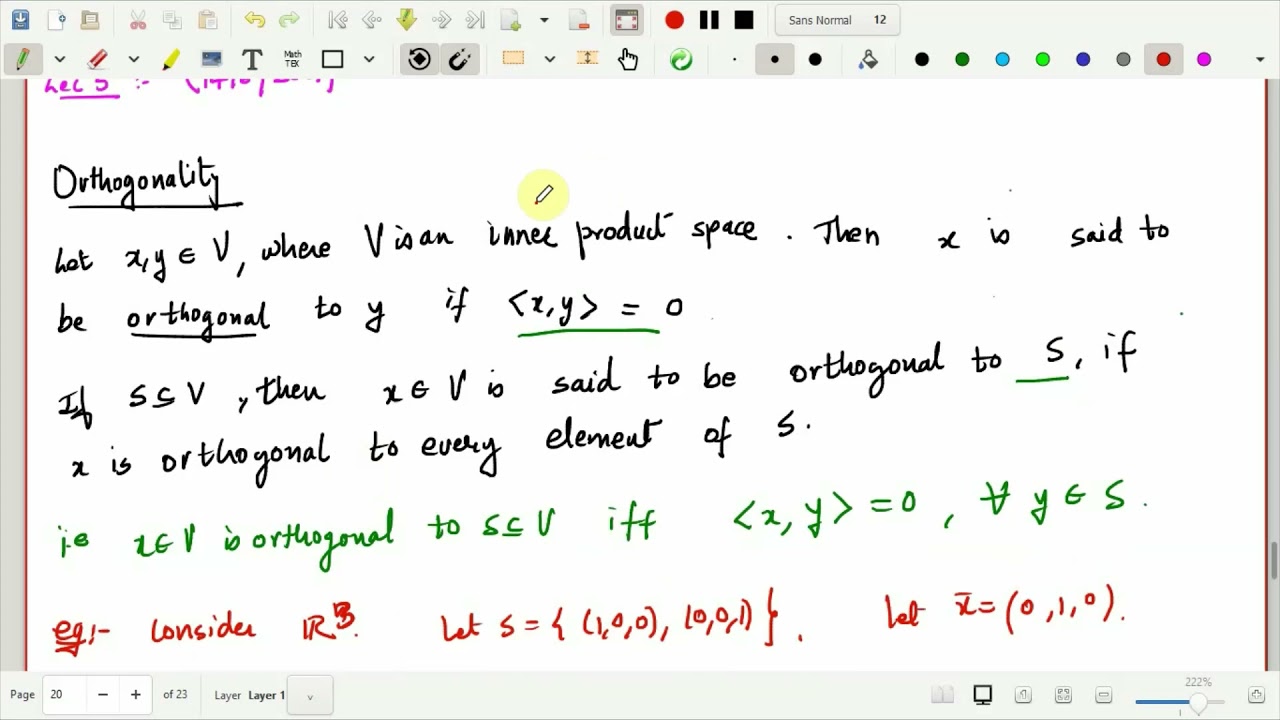 Sans Normal 12
T Math TEX
Lec 5 :-
Orthogonality
Let x,y ∈ V, where V is an inner product space. Then x is said to
be orthogonal to y if <x,y> = 0
If S⊆V, then x∈V is said to be orthogonal to S, if
x is orthogonal to every element of S.
i.e x∈V is orthogonal to S⊆V iff <x,y> = 0, ∀ y ∈ S.
eg:- Consider ℝ³. Let S = { (1,0,0), (0,0,1) }. Let x̄ = (0,1,0).
Page 20 of 23 Layer Layer 1 222%